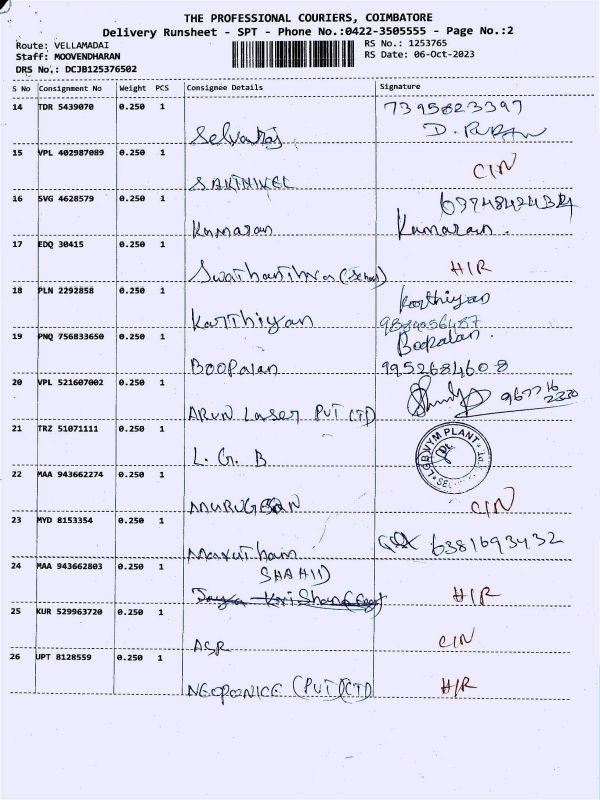 THE PROFESSIONAL COURIERS, COIMBATORE
Delivery Runsheet - SPT - Phone No.:0422-3505555 - Page No.:2
Route: VELLAMADAI RS No.: 1253765
Staff: MOOVENDHARAN RS Date: 06-Oct-2023
DRS No.: DCJB125376502
S No Consignment No Weight PCS Consignee Details Signature
14 TDR 5439070 0.250 1 7395823397
Selvaraj
15 VPL 402987089 0.250 1 CIN
SAKTHIVEL
16 SVG 4628579 0.250 1
Kumaran Kumaran.
17 EDQ 30415 0.250 1 H/R
(School)
18 PLN 2292858 0.250 1 Karthiyan
Karthiyan
19 PNQ 756833650 0.250 1 Boopalan.
Boopalan 9952684608
20 VPL 521607002 0.250 1
ARUN Laser PVT LTD
21 TRZ 51071111 0.250 1 LGB VYM PLANT
L. G. B
22 MAA 943662274 0.250 1 CIN
23 MYD 8153354 0.250 1 6381693432
Marutham
24 MAA 943662803 0.250 1 SHAHID
H/R
25 KUR 529963720 0.250 1 CIN
ASR
26 UPT 8128559 0.250 1 H/R
(PVT) LTD